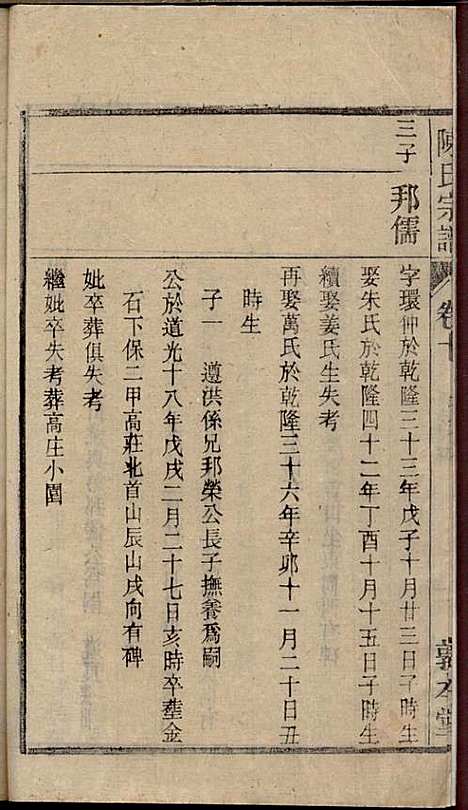 陳氏宗譜
卷十
敦本堂
三子
邦儒
字環仲於乾隆三十三年戊子十月廿三日子時生
娶朱氏於乾隆四十二年丁酉十月十五日子時生
續娶姜氏生失考
再娶萬氏於乾隆三十六年辛卯十一月二十日丑
時生
子一 遵洪係兄邦榮公長子撫養爲嗣
公於道光十八年戊戌二月二十七日亥時卒塟金
石下保二甲高莊北首山辰山戌向有碑
妣卒葬俱失考
繼妣卒失考葬高庄小園